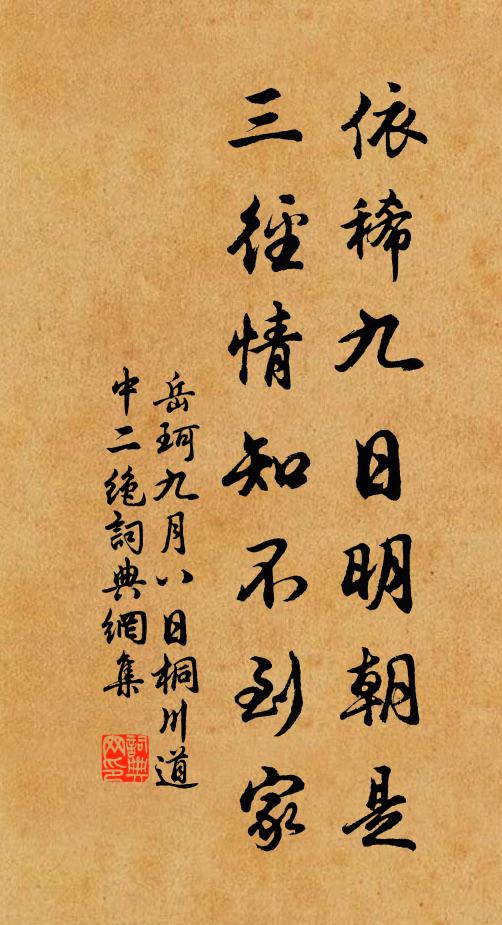 依稀九日明朝是
三徑情知不到家
岳珂九月八日桐川道
中二絕詞典網集
詞典
网印